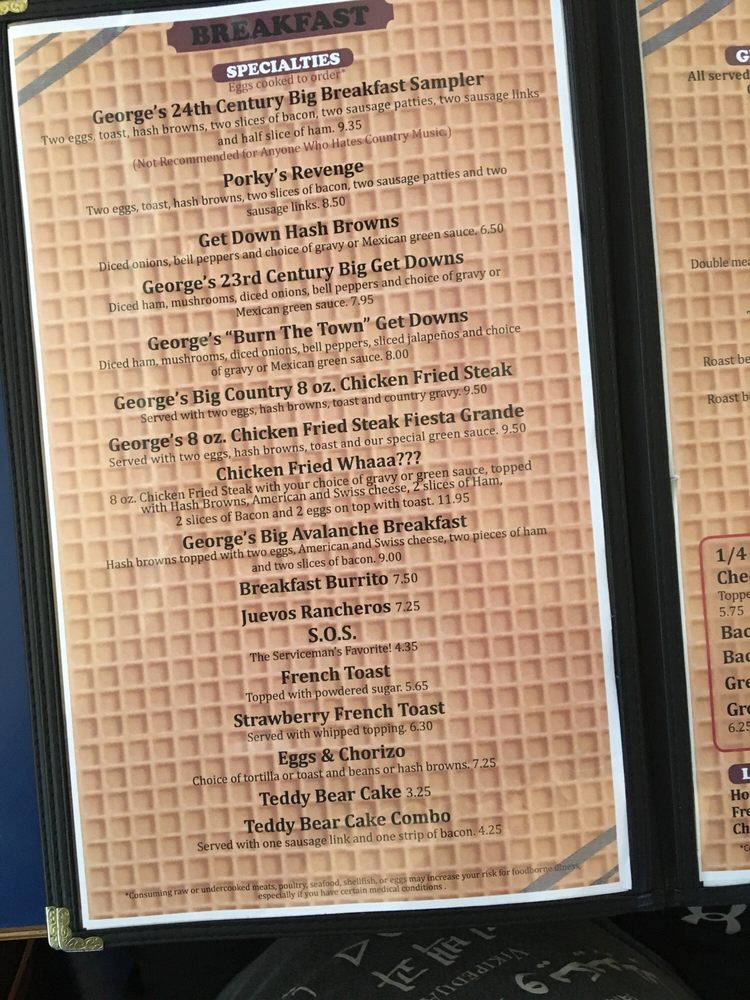 BREAKFAST
SPECIALTIES
Eggs cooked to order*
George's 24th Century Big Breakfast Sampler
Two eggs, toast, hash browns, two slices of bacon, two sausage patties, two sausage links
and half slice of ham. 9.35
(Not Recommended for Anyone Who Hates Country Music.)
Porky's Revenge
Two eggs, toast, hash browns, two slices of bacon, two sausage patties and two
sausage links. 8.50
Get Down Hash Browns
Diced onions, bell peppers and choice of gravy or Mexican green sauce. 6.50
George's 23rd Century Big Get Downs
Diced ham, mushrooms, diced onions, bell peppers and choice of gravy or
Mexican green sauce. 7.95
George's "Burn The Town" Get Downs
Diced ham, mushrooms, diced onions, bell peppers, sliced jalapeños and choice
of gravy or Mexican green sauce. 8.00
George's Big Country 8 oz. Chicken Fried Steak
Served with two eggs, hash browns, toast and country gravy. 9.50
George's 8 oz. Chicken Fried Steak Fiesta Grande
Served with two eggs, hash browns, toast and our special green sauce. 9.50
Chicken Fried Whaaa???
8 oz. Chicken Fried Steak with your choice of gravy or green sauce, topped
with Hash Browns, American and Swiss cheese, 2 slices of Ham,
2 slices of Bacon and 2 eggs on top with toast. 11.95
George's Big Avalanche Breakfast
Hash browns topped with two eggs, American and Swiss cheese, two pieces of ham
and two slices of bacon. 9.00
Breakfast Burrito 7.50
Juevos Rancheros 7.25
S.O.S.
The Serviceman's Favorite! 4.35
French Toast
Topped with powdered sugar. 5.65
Strawberry French Toast
Served with whipped topping. 6.30
Eggs & Chorizo
Choice of tortilla or toast and beans or hash browns. 7.25
Teddy Bear Cake 3.25
Teddy Bear Cake Combo
Served with one sausage link and one strip of bacon. 4.25
*Consuming raw or undercooked meats, poultry, seafood, shellfish, or eggs may increase your risk for foodborne illness,
especially if you have certain medical conditions .
All served
Double mea
Roast be
Roast b
1/4
Che
Toppe
5.75
Bac
Bac
Gre
Gre
6.25
Ho
Fre
Ch